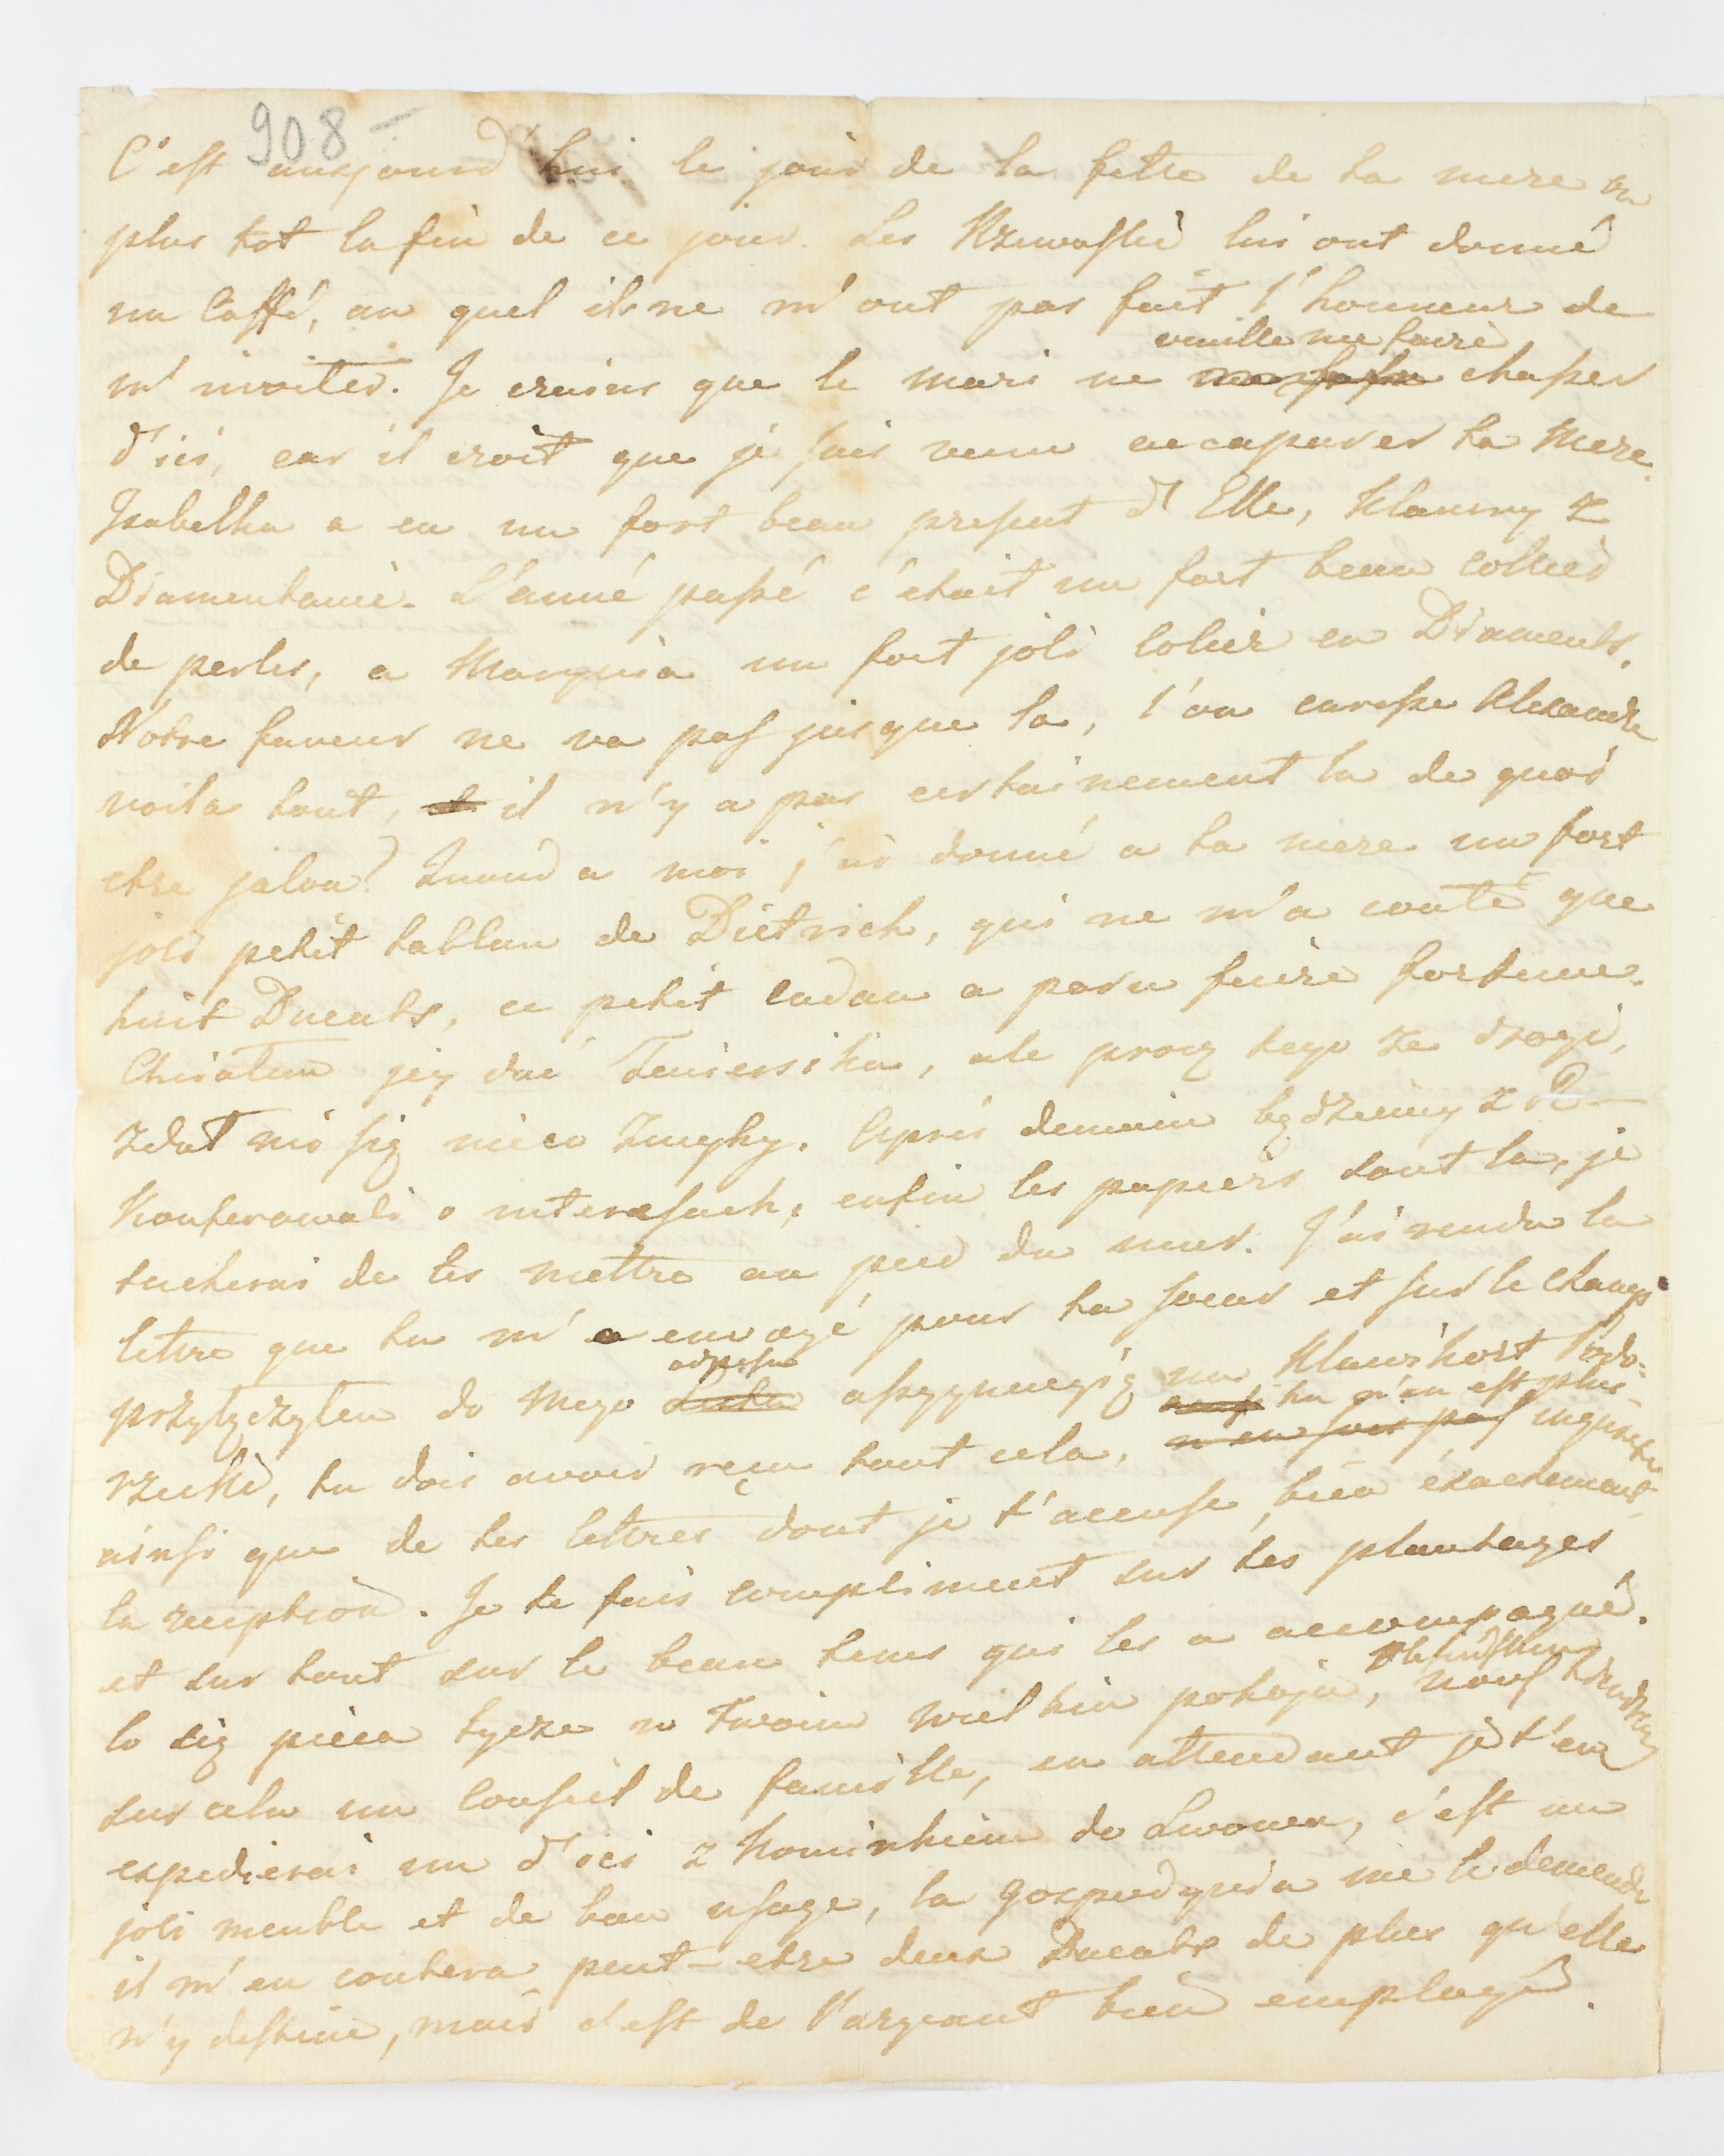 908 -
C'est aujourd'hui le jour de la fette de ta mere ou
plus tot la fin de ce jour. Les Rzewuski lui ont donné
un Caffé, au quel ils ne m'ont pas fait l'honneur de
veuille me faire
m'inviter. Je crains que le mari ne chasser
d'ici, car il croit que je suis venu accaparer ta Mere.
Isabelka a eu un fort beau present d'Elle, Klamry z
Diamentami. L'anné passé c'etait un fort beau collier
de perles, a Marynia un fort joli Colier en Diaments.
Notre faveur ne va pas jusque la, l'on caresse Alexandre
voila tout, il n'y a pas certainement la de quoi
etre jaloux! Quand a moi j'ai donné a ta mere un fort
joli petit tablau de Dietrich, qui ne m'a couté que
huit Ducats, ce petit cadau a paru faire fortune.
Chciałem jey dać Teniersika, ale procz tego że drogi,
zdał mi się nieco zmyty. Après demain będziemy z R—
Konferowali o interessach, enfin les papiers sont la, je
tacherai de les mettre au pied du mur. J'ai rendu la
lettre que tu m'a envoyé pour ta soeur et sur le champ
adressu
przyłączyłem do mego assygnacyią na Klawikort Podo-
tu n'en est plus
rzecki, tu dois avoir reçu tout cela, inquiete
ainsi que de tes lettres dont je t'accuse bien éxactement
la reception. Je te fais compliment sur tes plantages
et sur tout sur le beau tems qui les a accompagné.
Co się pieca tycze w Twoim wielkim pokoju, nous tiendrons
sur cela un Conseil de famille, en attendant je t'en
expedierai un d'ici z Kominkiem do Lwowa, c'est un
joli meuble et de bon usage, la Gospodynia me le demende
il m'en coutera peut-etre deux Ducats de plus qu'elle
n'y destine, mais c'est de l'argeant bien employé.